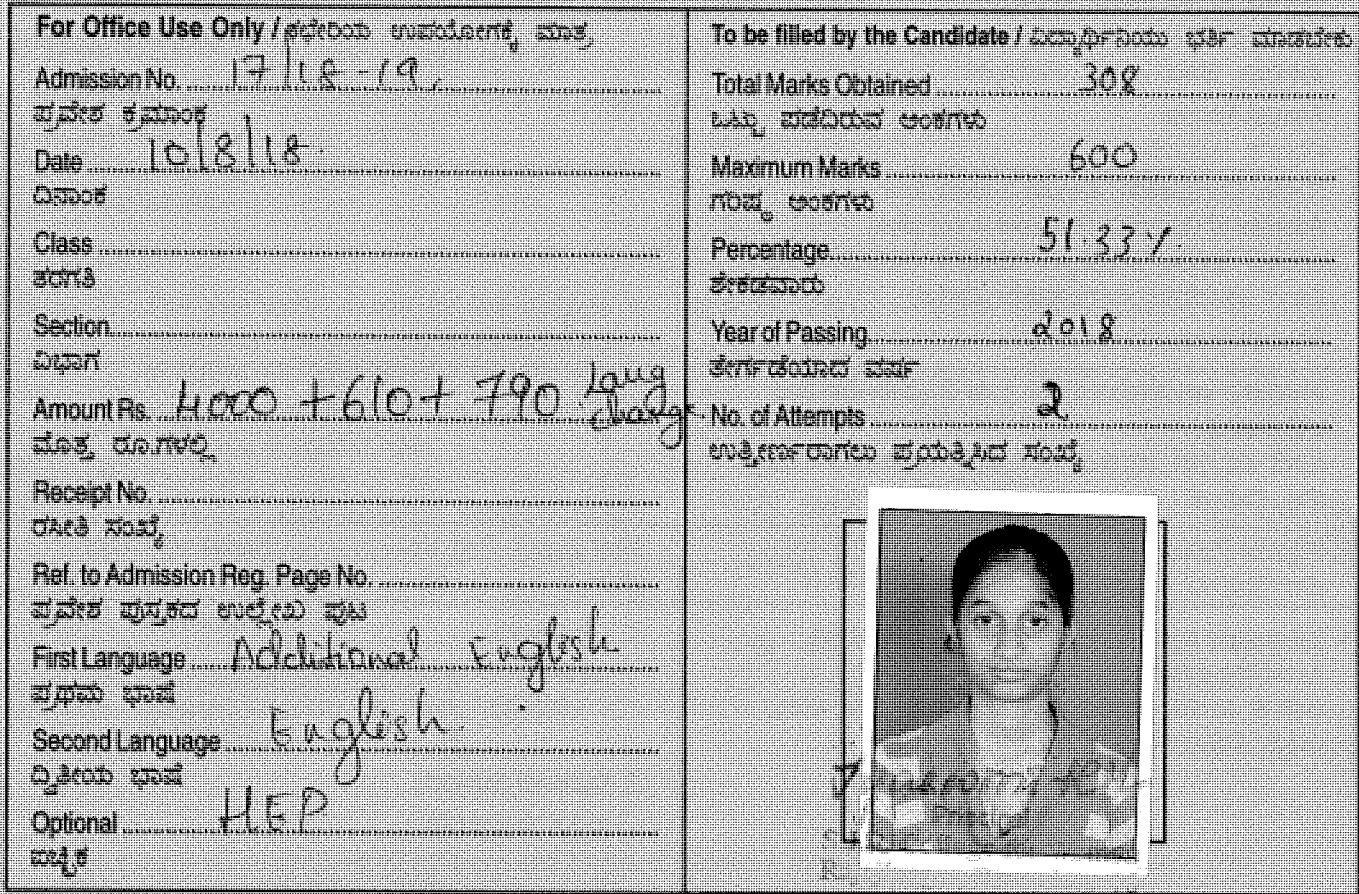 For Office Use Only / ಕಛೇರಿಯ ಉಪಯೋಗಕ್ಕೆ ಮಾತ್ರ
Admission No. 17/18-19,
ಪ್ರವೇಶ ಕ್ರಮಾಂಕ
Date 10/8/18.
ದಿನಾಂಕ
Class
ತರಗತಿ
Section
ವಿಭಾಗ
Amount Rs. 4000 + 610 + 790 lang change
ಮೊತ್ತ ರೂ.ಗಳಲ್ಲಿ
Receipt No.
ರಸೀತಿ ಸಂಖ್ಯೆ
Ref. to Admission Reg. Page No.
ಪ್ರವೇಶ ಪುಸ್ತಕದ ಉಲ್ಲೇಖ ಪುಟ
First Language Additional English
ಪ್ರಥಮ ಭಾಷೆ
Second Language English.
ದ್ವಿತೀಯ ಭಾಷೆ
Optional HEP
ಐಚ್ಛಿಕ
To be filled by the Candidate / ವಿದ್ಯಾರ್ಥಿನಿಯು ಭರ್ತಿ ಮಾಡಬೇಕು
Total Marks Obtained 308
ಒಟ್ಟು ಪಡೆದಿರುವ ಅಂಕಗಳು
Maximum Marks 600
ಗರಿಷ್ಠ ಅಂಕಗಳು
Percentage 51.33%
ಶೇಕಡವಾರು
Year of Passing 2018
ತೇರ್ಗಡೆಯಾದ ವರ್ಷ
No. of Attempts 2
ಉತ್ತೀರ್ಣರಾಗಲು ಪ್ರಯತ್ನಿಸಿದ ಸಂಖ್ಯೆ